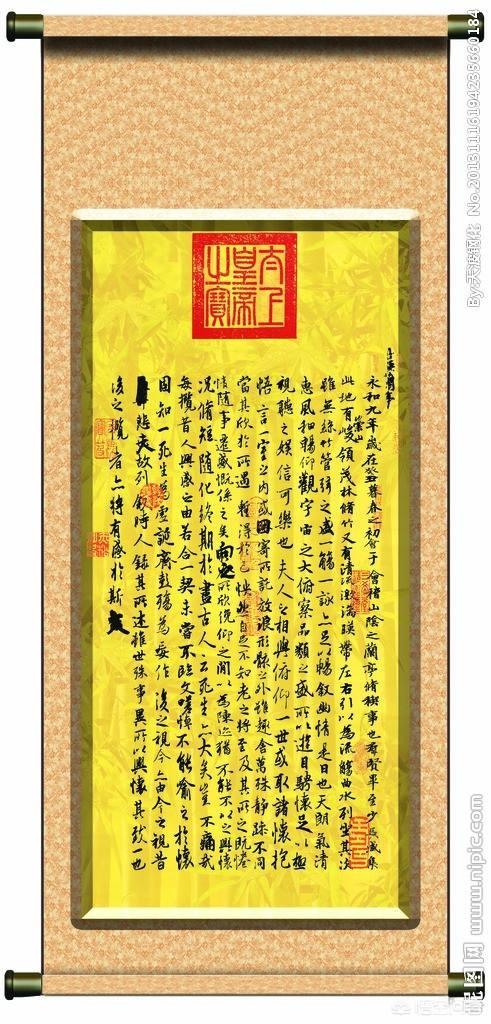 太上皇帝之寶
永和九年歲在癸丑暮春之初會于會稽山陰之蘭亭脩稧事也群賢畢至少長咸集
此地有崇山峻領茂林脩竹又有清流激湍暎帶左右引以為流觴曲水列坐其次
雖無絲竹管弦之盛一觴一詠亦足以暢敘幽情是日也天朗氣清
惠風和暢仰觀宇宙之大俯察品類之盛所以遊目騁懷足以極
視聽之娛信可樂也夫人之相與俯仰一世或取諸懷抱
悟言一室之內或因寄所託放浪形骸之外雖趣舍萬殊靜躁不同
當其欣於所遇暫得於己怏然自足不知老之將至及其所之既惓
情隨事遷感慨係之矣向之所欣俛仰之間以為陳迹猶不能不以之興懷
況脩短隨化終期於盡古人云死生亦大矣豈不痛哉
每攬昔人興感之由若合一契未嘗不臨文嗟悼不能喻之於懷
固知一死生為虛誕齊彭殤為妄作後之視今亦由今之視昔
悲夫故列敘時人錄其所述雖世殊事異所以興懷其致一也
後之攬者亦將有感於斯文
No.20131116194235660184
昵图网 www.nipic.com
悟空问答